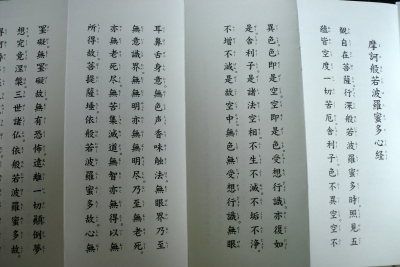 摩訶般若波羅蜜多心経
観自在菩薩行深般若波羅蜜多時照見五
蘊皆空度一切苦厄舎利子色不異空空不
異色色即是空空即是色受想行識亦復如
是舎利子是諸法空相不生不滅不垢不浄
不増不減是故空中無色無受想行識無眼
耳鼻舌身意無色声香味触法無眼界乃至
無意識界無無明亦無無明尽乃至無老死
亦無老死尽無苦集滅道無智亦無得以無
所得故菩提薩埵依般若波羅蜜多故心無
罣礙無罣礙故無有恐怖遠離一切顛倒夢
想究竟涅槃三世諸仏依般若波羅蜜多故